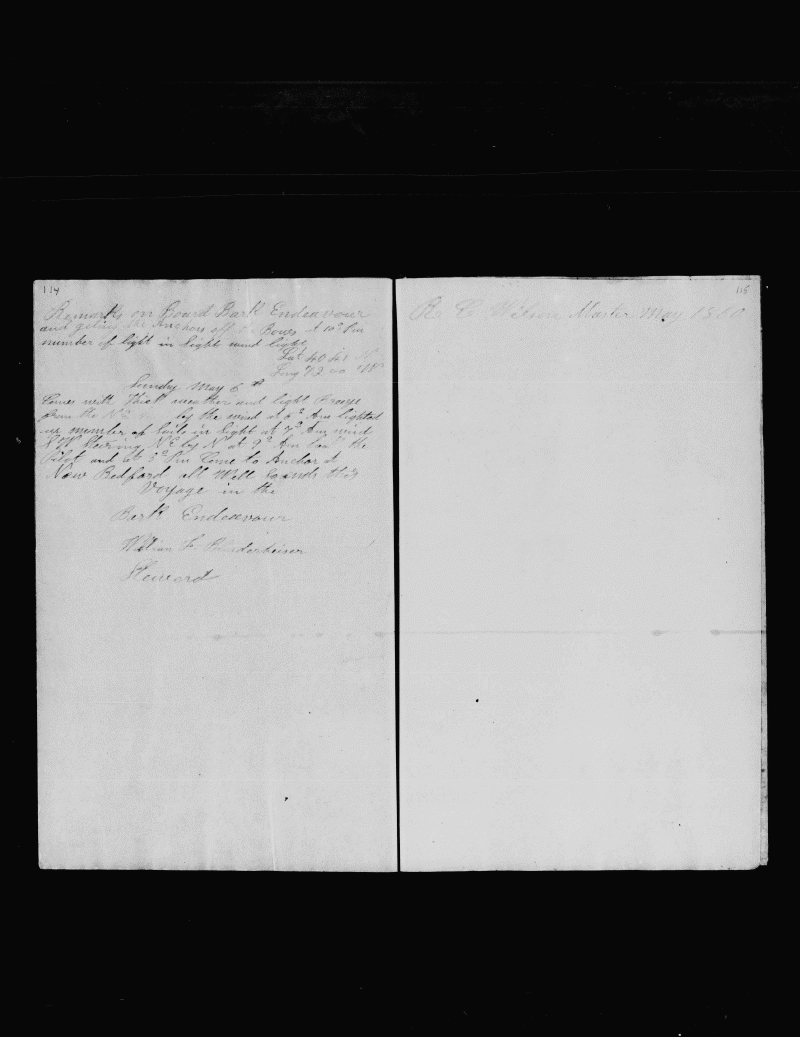 114
Remarks on Board Bark Endeavour
and getting the Anchors off the Bows at 10° Pm
number of light in sight wind light
Lat 40 N
Long 72 00 W
Sunday May 6th
Comes with Thick weather and light Breeze
from the by the wind at 6° Am lighted
up number of Sails in sight at 7° Am wind
SW Steering NE by N at 9° Am the
Pilot and at 3° Pm Came to Anchor at
New Bedford all Well So ends this
Voyage in the
Bark Endeavour
William F
Steward
115
R C Wilson Master May 1860